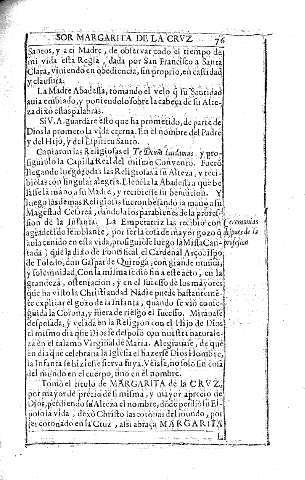 SOR MARGARITA DE LA CRVZ 76
Santos, y a ti Madre, de observar todo el tiempo de
mi vida esta Regla, dada por San Francisco a Santa
Clara, viviendo en obediencia, sin proprio, en castidad
y clausura.
La Madre Abadessa, tomando el velo q̃ su Santidad
auia embiado, y poniendolo sobre la cabeça de su Alte-
za dixo estas palabras.
Si V. A. guardare esto que ha prometido, de parte de
Dios la prometo la vida eterna. En el nombre del Padre
y del Hijo, y del Espiritu Santo.
Cantaron las Religiosas el Te Deum laudamus, y pro-
siguiolo la Capilla Real del mismo Convento. Fueron
llegando luego todas las Religiosas a su Alteza, y reci-
biolas con singular alegria. Llevola la Abadessa a que be
sasse la mano a su Madre, y recibiesse su bendicion. Y
luego las demas Religiosas fueron besando la mano a su
Magestad Cesarea, dandola los parabienes de la profes-
sion de la Infanta. La Emperatriz las recibio con
agradecido semblante, por ser la cosa de mayor gozo q̃
auia tenido en esta vida, prosiguiose luego la Missa Can-
tada; que la dixo de Pontifical el Cardenal Arçobispo
de Toledo, don Gaspar de Quiroga, con grande musica,
y solemnidad. Con la misma se dio fin a este acto, en la
grandeza, ostentacion, y en el sucesso de los mayores
que ha visto la Christiandad. Nadie puede bastantemen-
te explicar el gozo de la Infanta, quando se vio conse-
guida la Corona, y fuera de riesgo el sucesso. Mirauase
desposada, y velada en la Religion con el Hijo de Dios
el mismo dia que Dios se desposò con nuestra naturale-
za en el talamo Virginal de Maria. Alegrauase, de que
en dia que celebra la Iglesia el hazerse Dios Hombre,
la Infanta se hiziesse sierva suya. Veíase, no solo en
del mundo en el cuerpo, sino en el nombre.
Tomò el titulo de MARGARITA de la CRVZ,
por mayor desprecio de si misma, y mayor aprecio de
Dios, perdiendo su Alteza el nombre, donde perdio su Es-
poso la vida, dexò Christo las coronas del mundo, por
ser coronado en la Cruz, assi abraça MARGARITA
Ceremonias
despues de la
profession